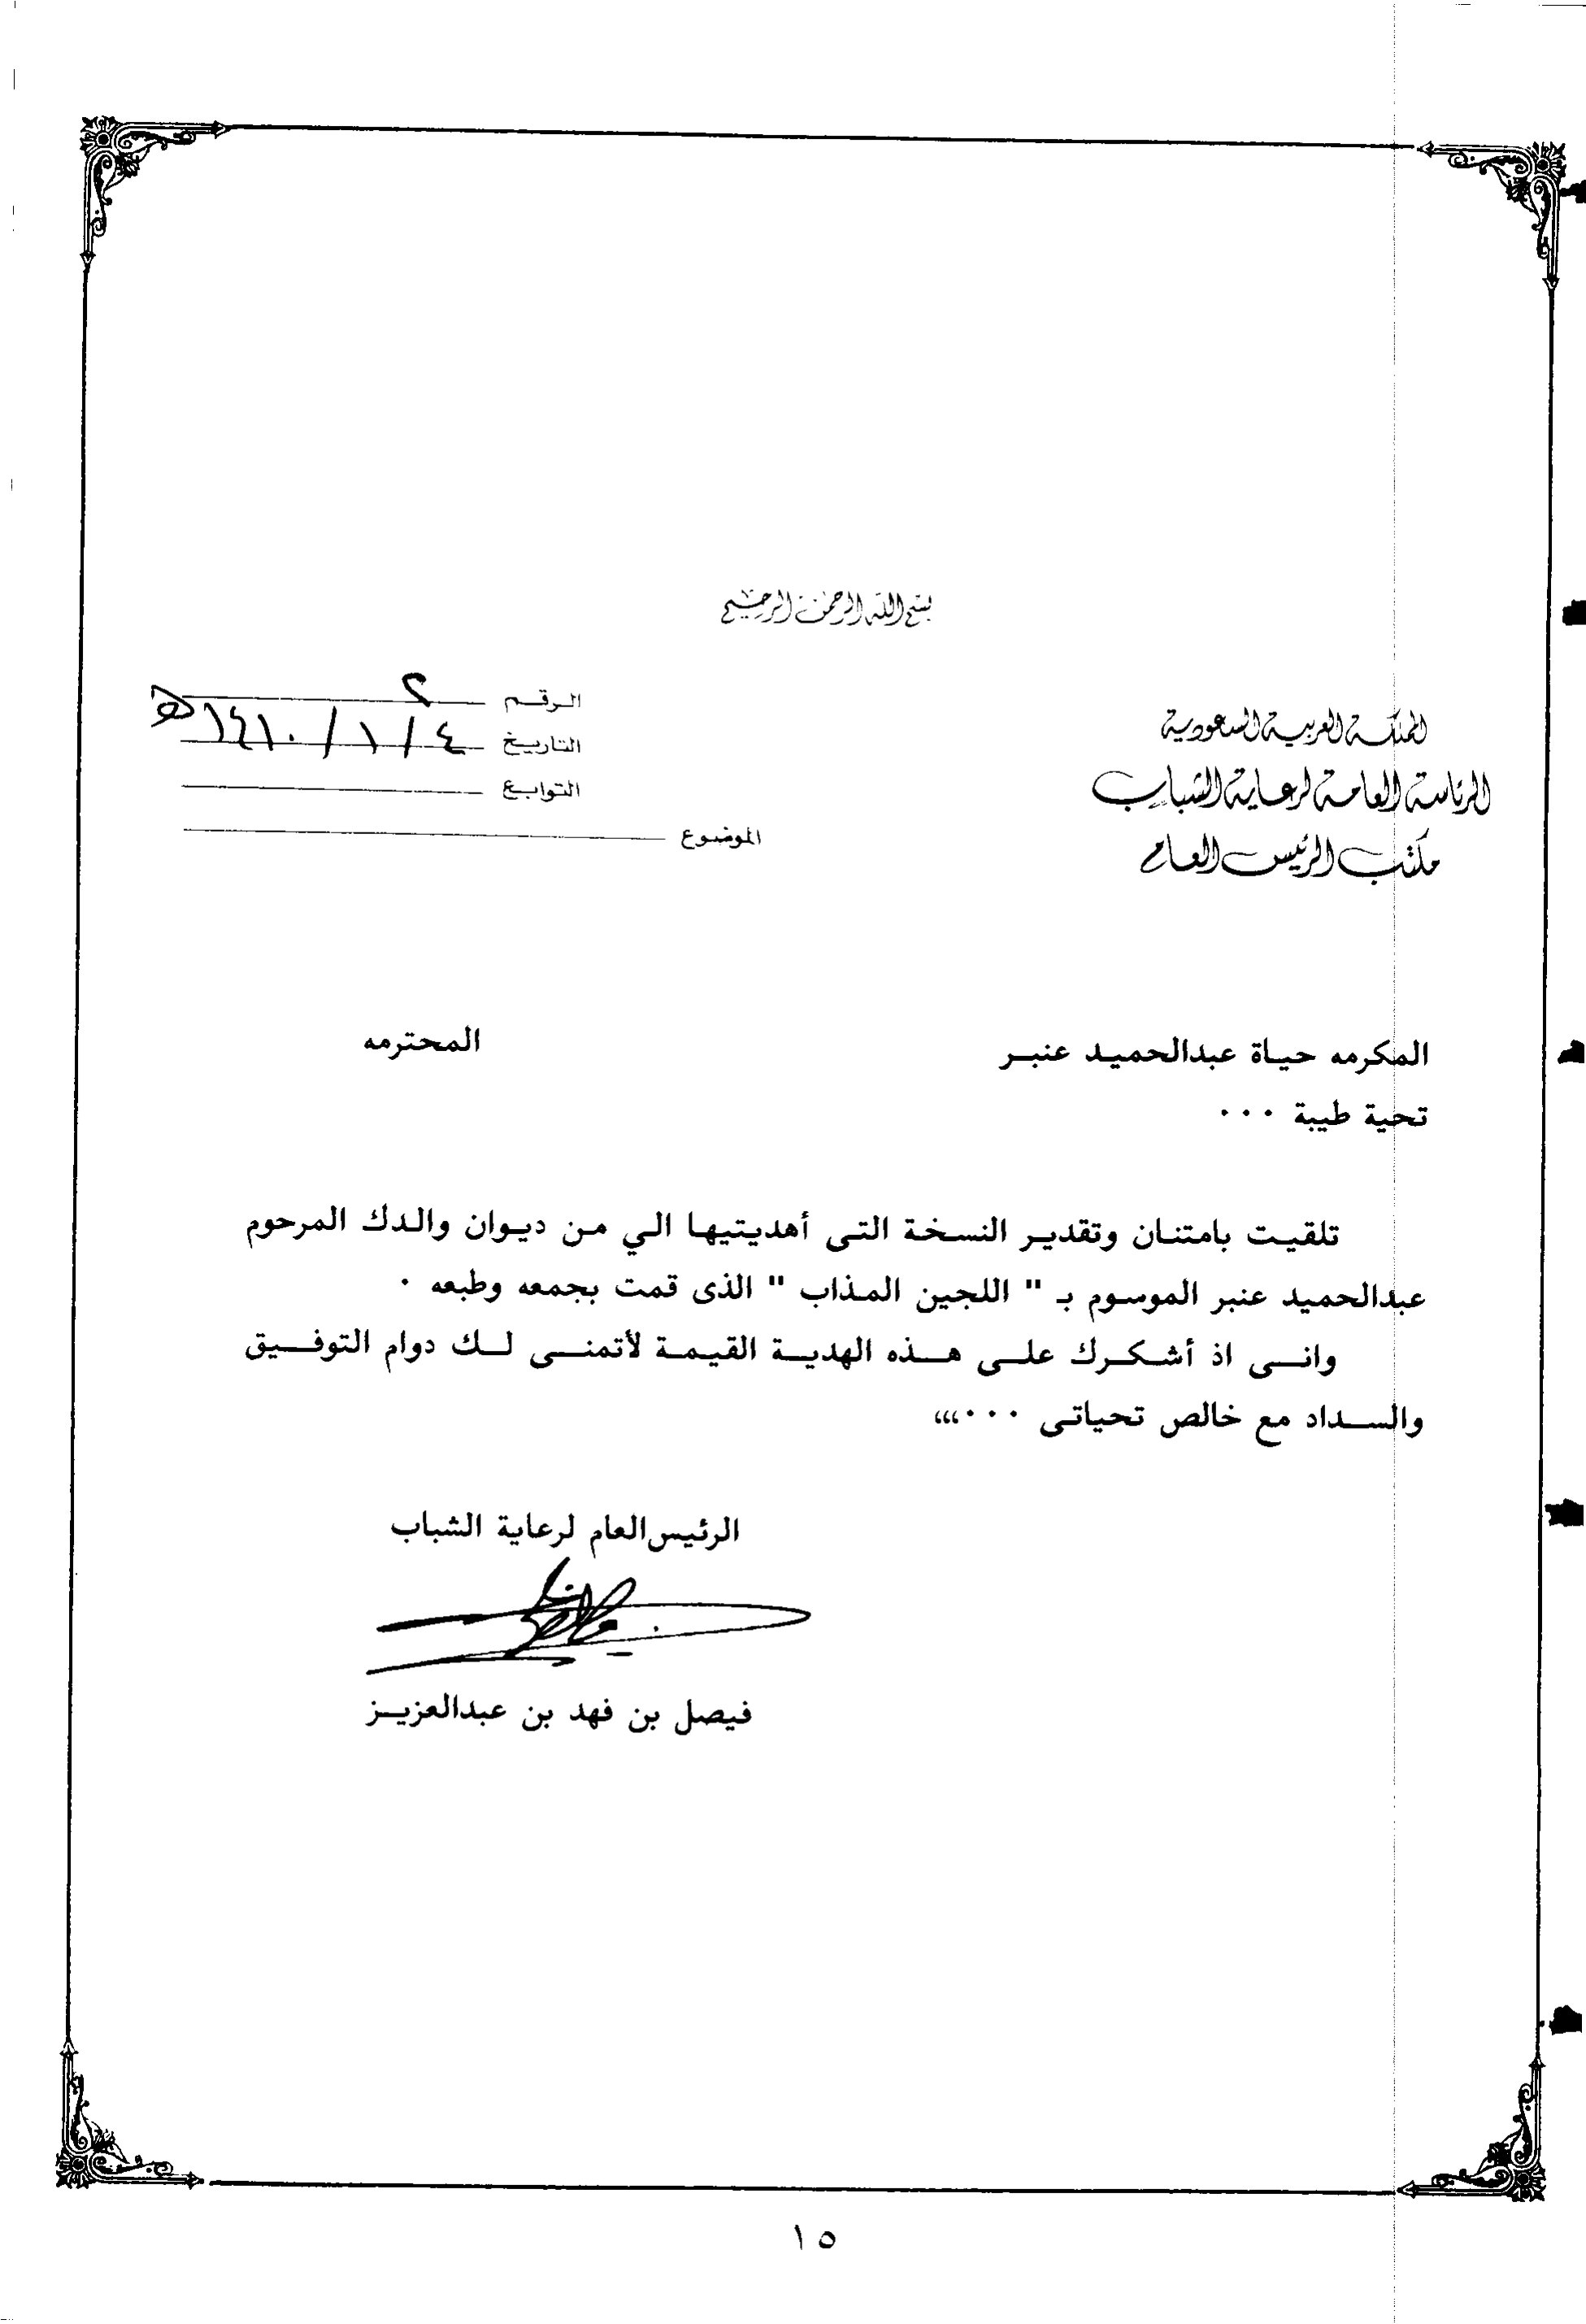 بسم الله الرحمن الرحيم
المملكة العربية السعودية
الرئاسة العامة لرعاية الشباب
مكتب الرئيس العام
الرقم ٢
التاريخ ٤ / ١ / ١٤١٠ هـ
التوابع
الموضوع
المكرمه حياة عبدالحميد عنبر المحترمه
تحية طيبة ٠٠٠
تلقيت بامتنان وتقدير النسخة التى أهديتيها الي من ديوان والدك المرحوم
عبدالحميد عنبر الموسوم بـ " اللجين المذاب " الذى قمت بجمعه وطبعه ٠
وانى اذ أشكرك على هذه الهدية القيمة لأتمنى لك دوام التوفيق
والسداد مع خالص تحياتى ٠٠٠،،،
الرئيس العام لرعاية الشباب
فيصل بن فهد بن عبدالعزيز
١٥